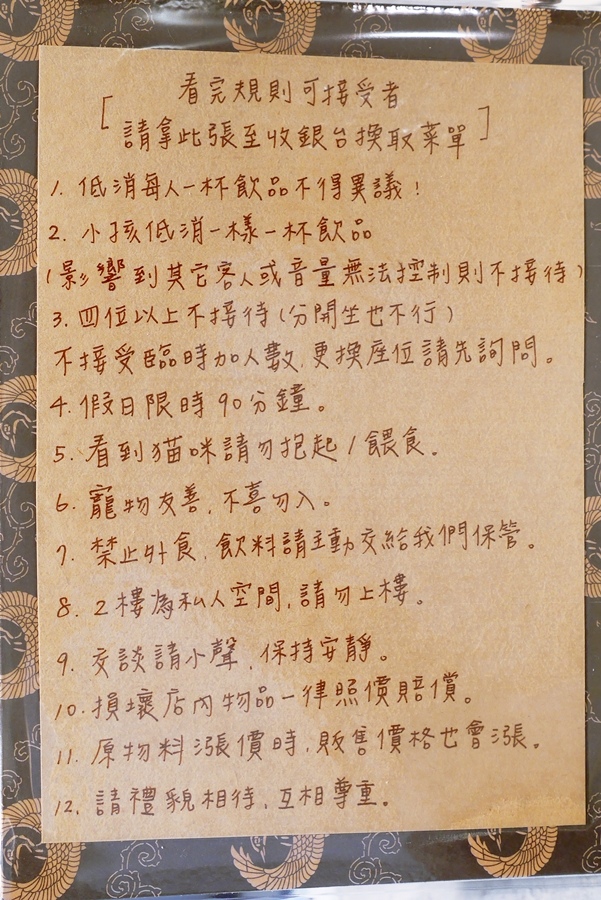 看完規則可接受者
[請拿此張至收銀台換取菜單]
1. 低消每人一杯飲品不得異議!
2. 小孩低消一樣一杯飲品
(影響到其它客人或音量無法控制則不接待)
3. 四位以上不接待(分開坐也不行)
不接受臨時加人數,更換座位請先詢問。
4. 假日限時90分鐘。
5. 看到猫咪請勿抱起/餵食。
6. 寵物友善,不喜勿入。
7. 禁止外食,飲料請主動交給我們保管。
8. 2樓為私人空間,請勿上樓。
9. 交談請小聲,保持安靜。
10. 損壞店內物品一律照價賠償。
11. 原物料漲價時,販售價格也會漲。
12. 請禮貌相待,互相尊重。